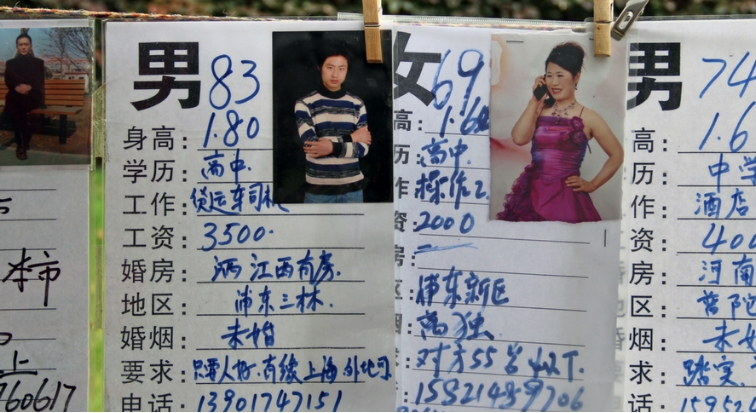 本市
上
760617
男 83
身高: 1.80
学历: 高中
工作: 货运车司机
工资: 3500.
婚房: 江西有房.
地区: 浦东三林.
婚烟: 未婚
要求: 有缘上海外地可
电话: 13901747151
女 69
高: 1.60
历: 高中
作: 操作工
资: 2000
房:
区: 浦东新区
烟: 离独
求: 对方55岁以下.
男 74
高: 1.6
历: 中学
作: 酒店
工资: 400
婚房: 河南
地区: 普陀
婚烟: 未女
要求: 踏实
电话: 15952